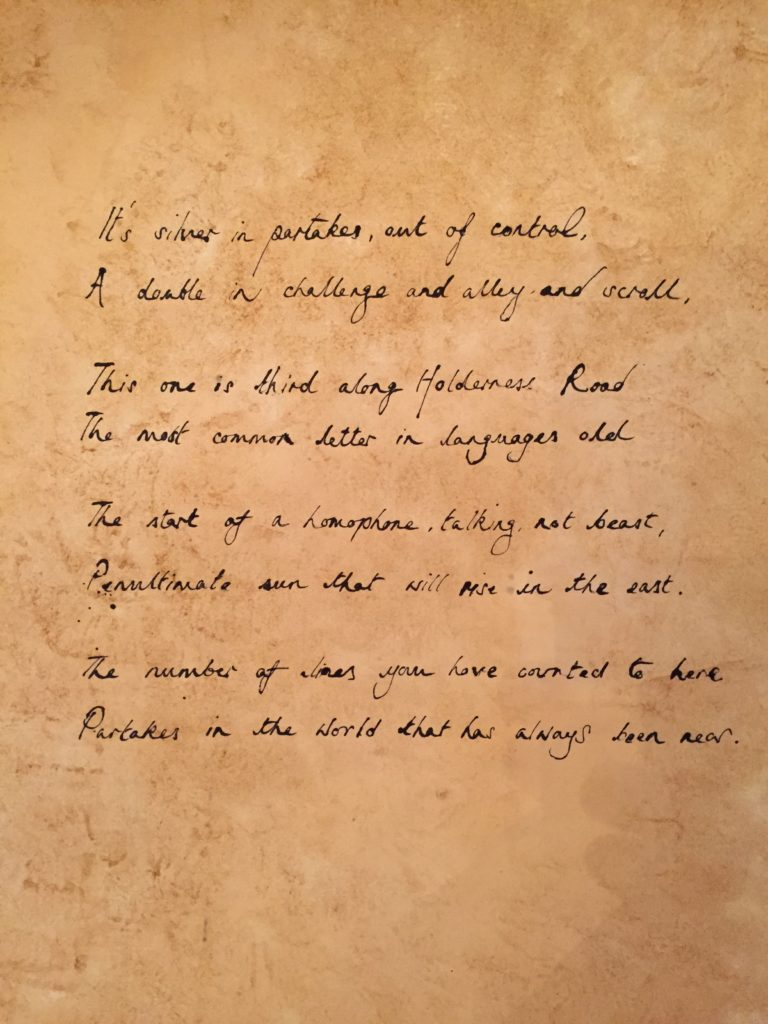 It's silver in partakes, out of control,
A double in challenge and alley and scroll,
This one is third along Holderness Road
The most common letter in languages old
The start of a homophone, talking, not beast,
Penultimate sun that will rise in the east.
The number of lines you have counted to here
Partakes in the world that has always been near.